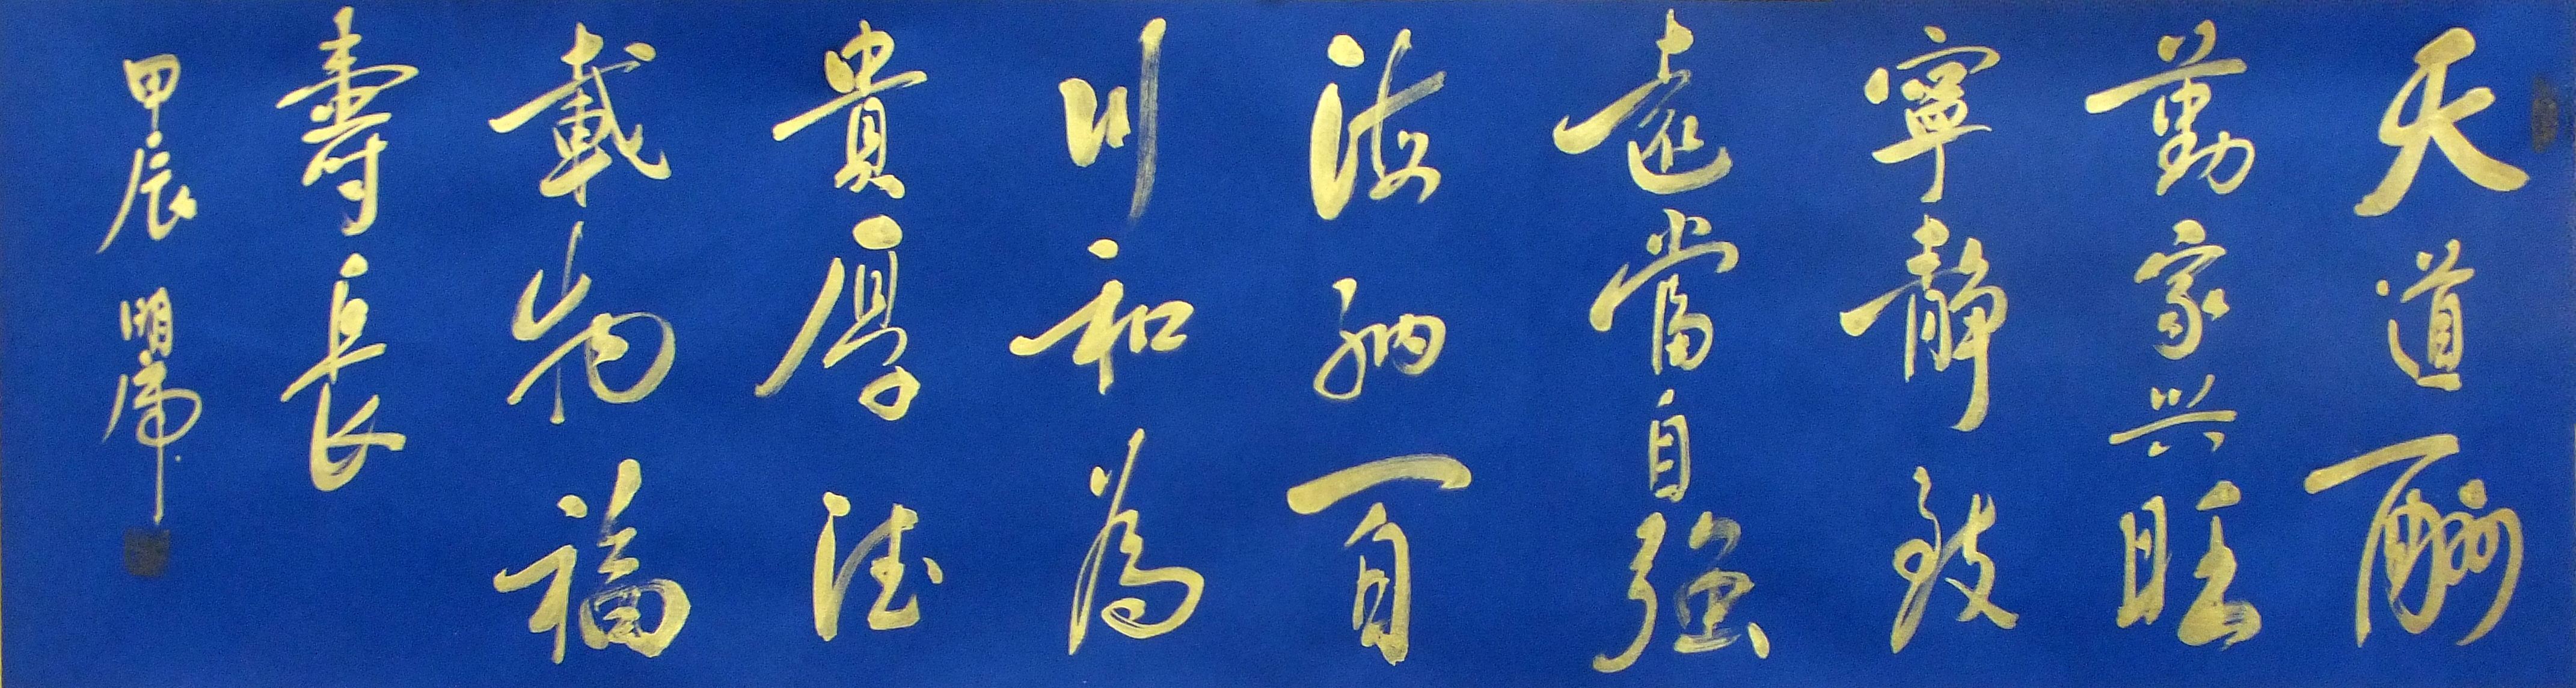 天道酬
勤家兴旺
寧靜致
遠當自強
海納百
川和為
貴厚德
載物福
壽長
甲辰 明席